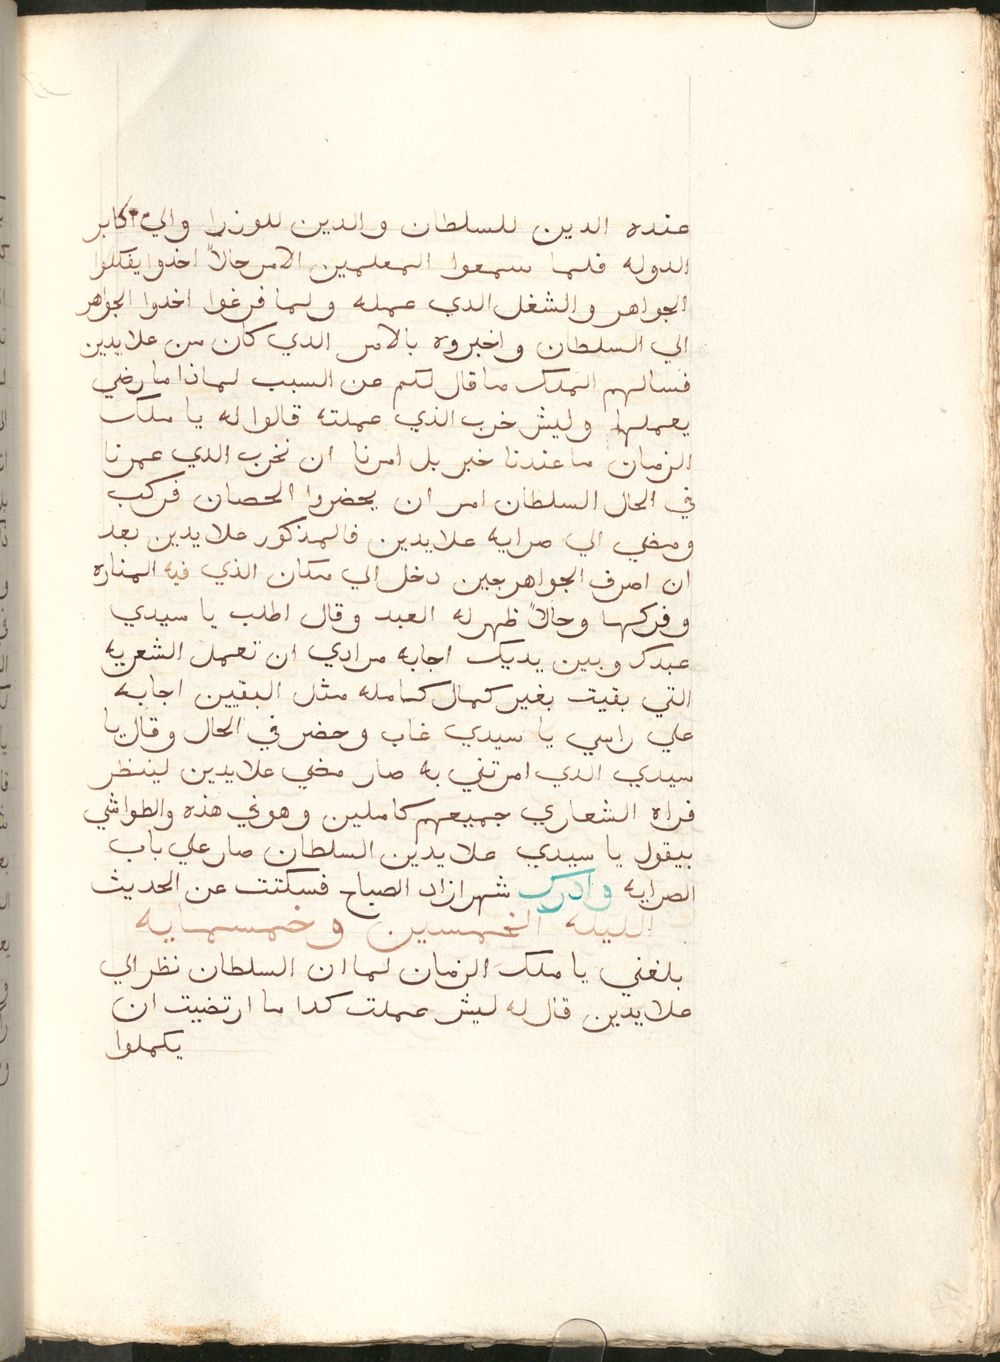 عنده الدين للسلطان والدين للوزرا والي اكابر
الدوله فلما سمعوا المعلمين الامر حالاً اخدوا يفكلوا
الجواهر والشغل الدي عمله ولما فرغوا اخدوا الجواهر
الي السلطان واخبروه بالامر الدي كان من علايدين
فسالهم الملك ما قال لكم عن السبب لماذا ما رضي
يعملها وليش خرب الذي عملته قالوا له يا ملك
الزمان ما عندنا خبر بل امرنا ان نخرب الدي عمرنا
في الحال السلطان امر ان يحضروا الحصان فركب
ومضي الي صرايه علايدين فالمذكور علايدين بعد
ان اصرف الجواهرجين دخل الي مكان الذي فيه المناره
وفركها وحالاً ظهر له العبد وقال اطلب يا سيدي
عبدك وبين يديك اجابه مرادي ان تعمل الشعريه
التي بقيت بغير كمال كامله مثل البقين اجابه
علي راسي يا سيدي غاب وحضر في الحال وقال يا
سيدي الدي امرتني به صار مضي علايدين لينظر
فراه الشعاري جميعهم كاملين وهو في هذه والطواشي
بيقول يا سيدي علايدين السلطان صار علي باب
الصرايه وادرك شهرازاد الصباح فسكتت عن الحديث
الليله الخمسين وخمسمايه
بلغني يا ملك الزمان لما ان السلطان نظر الي
علايدين قال له ليش عملت كدا ما ارتضيت ان
يكملوا